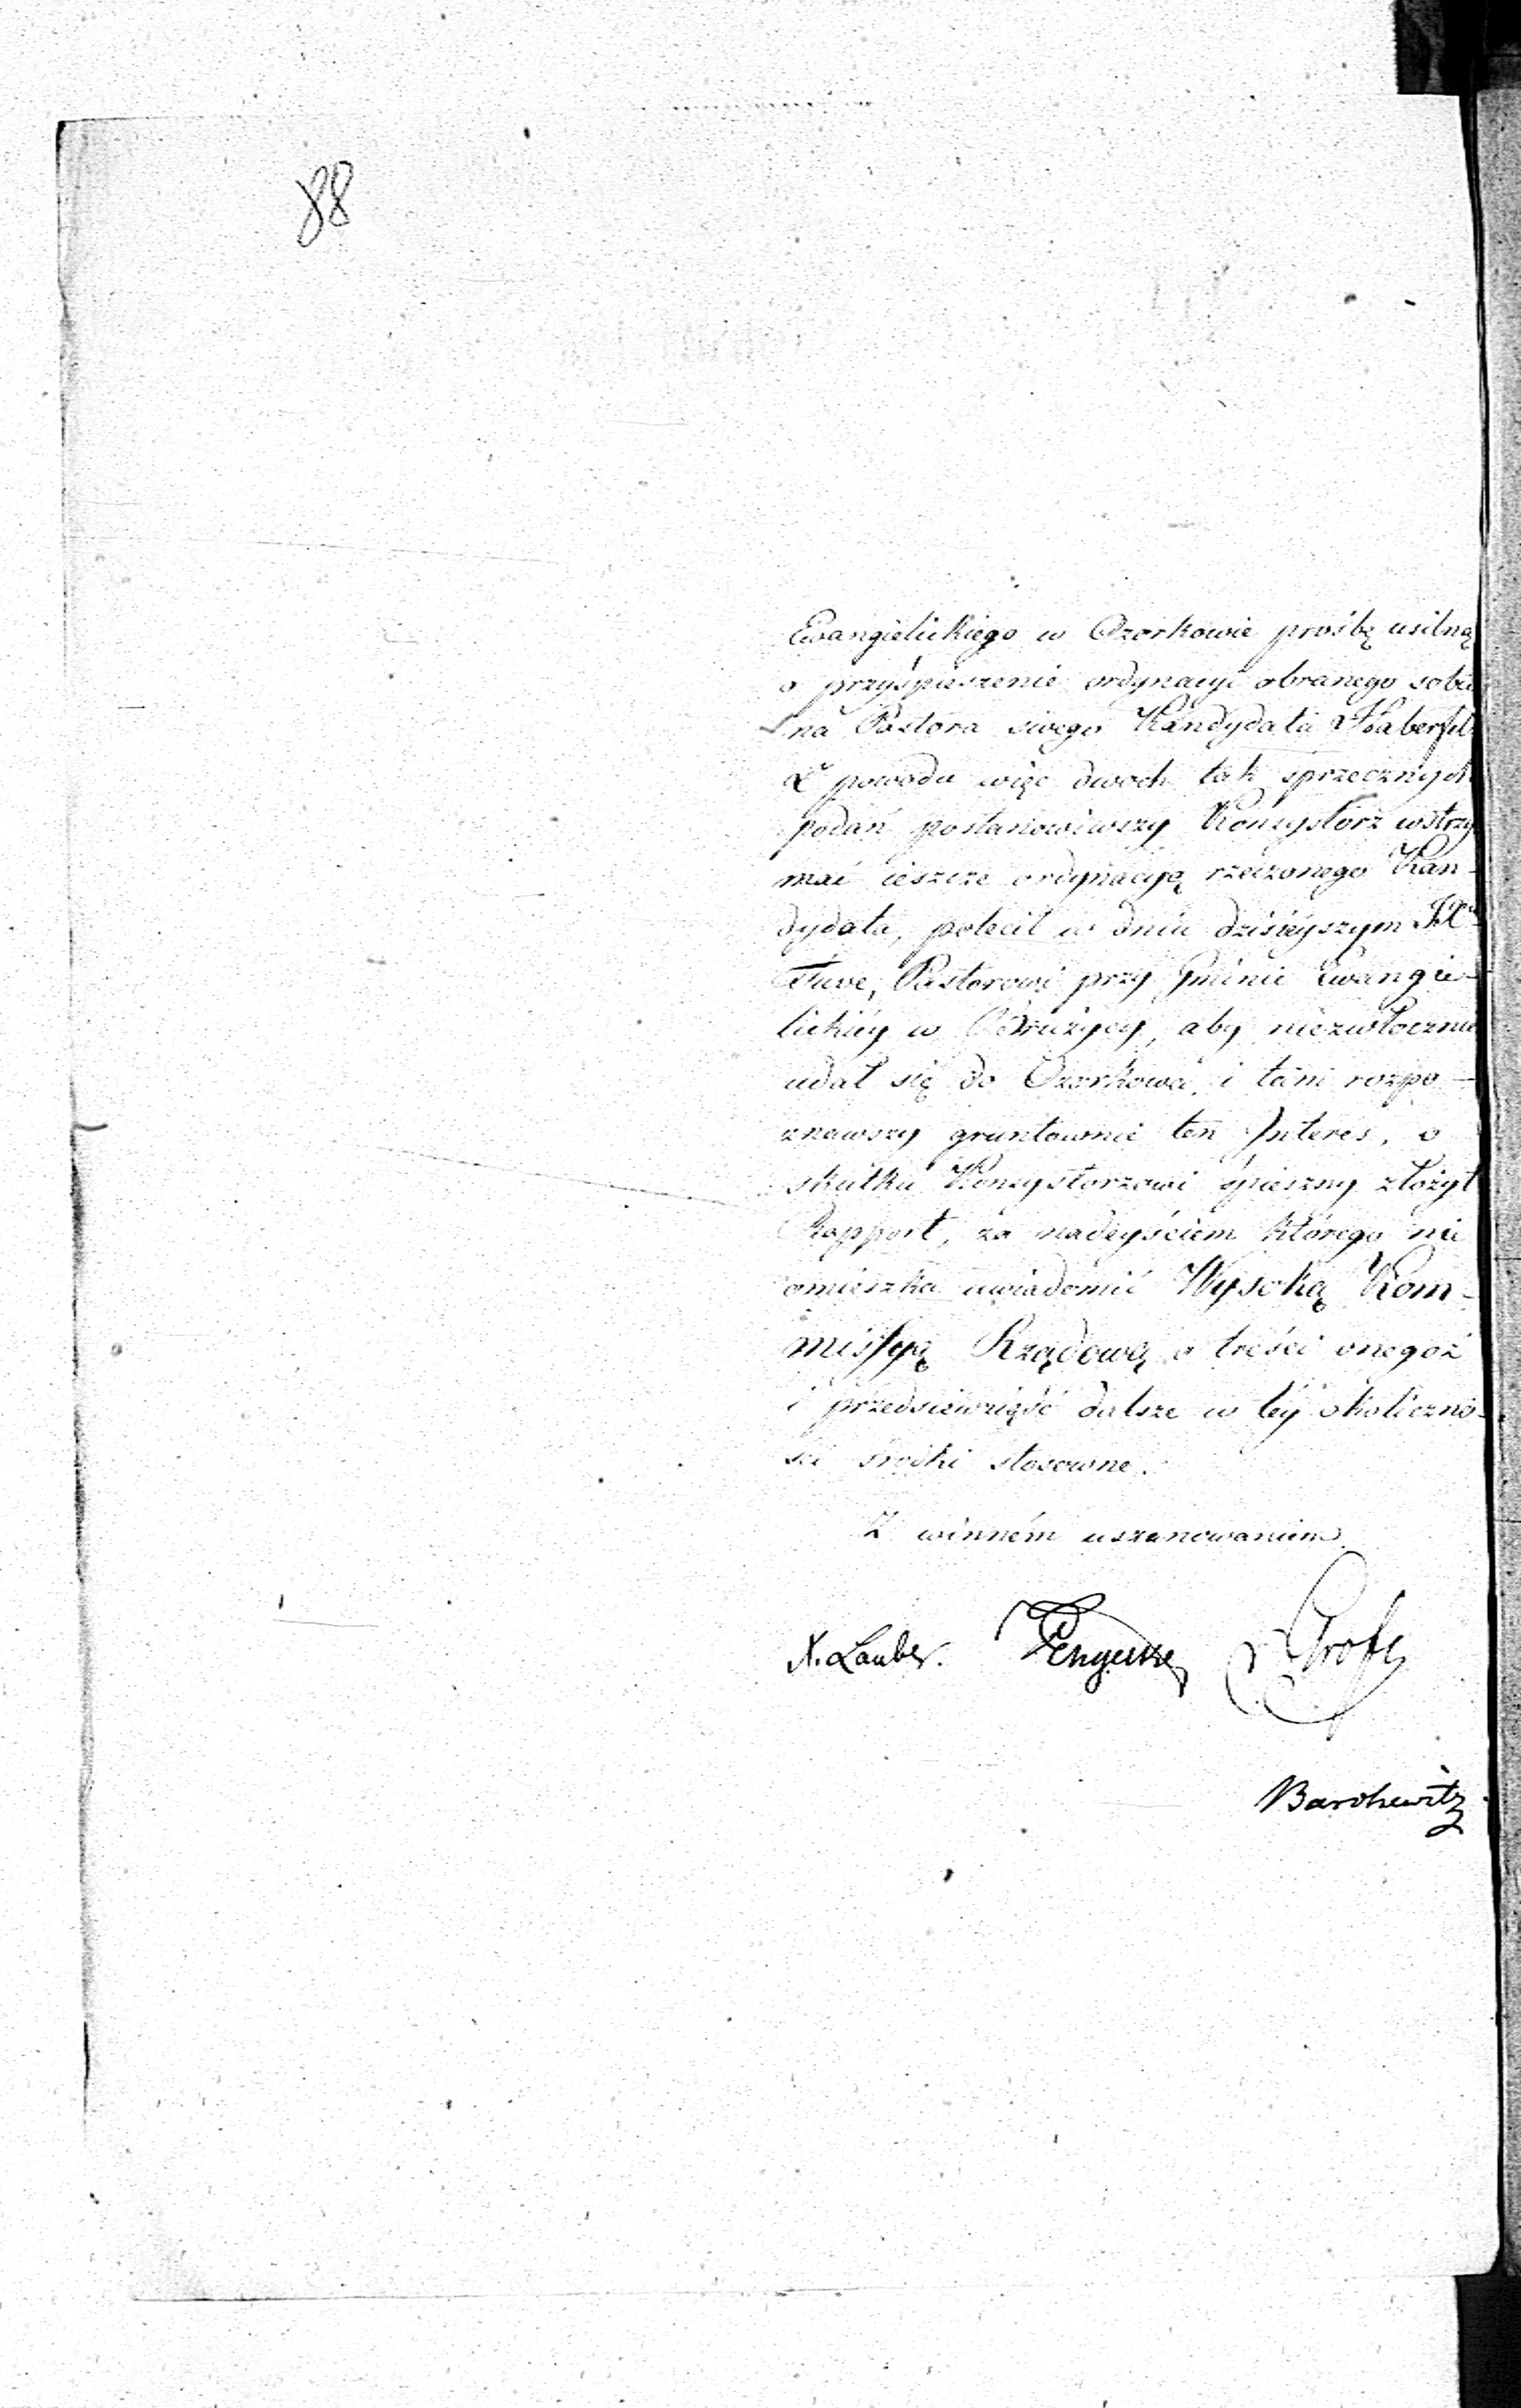 88
Ewangielickiego w Ozorkowie prośbę usilną
o przyśpieszenie ordynacyi obranego sobie
na Pastora swego Kandydata Haberfeld
Z powodu więc dwoch tak sprzecznych
podań postanowiwszy Konsystorz wstrzy
mać ieszcze ordynacyą rzeczonego Kan-
dydata, polecił w dniu dzisieyszym JX
Tuve, Pastorowi przy Gminie Ewangie-
lickiey w, aby niezwłocznie
udał się do Ozorkowa, i tam rozpo-
znawszy gruntownie ten Interes, o
skutku Konsystorzowi śpieszny złożył
Rapport, za nadeyściem którego nie
omieszka uwiadomić Wysoką Kom-
missyą Rządową o treści onegoż
i przedsiewziąść dalsze w tey okoliczno-
sci środki stosowne.
Z winném uszanowaniem
X. Lauber. Tengutke
Barchewitz